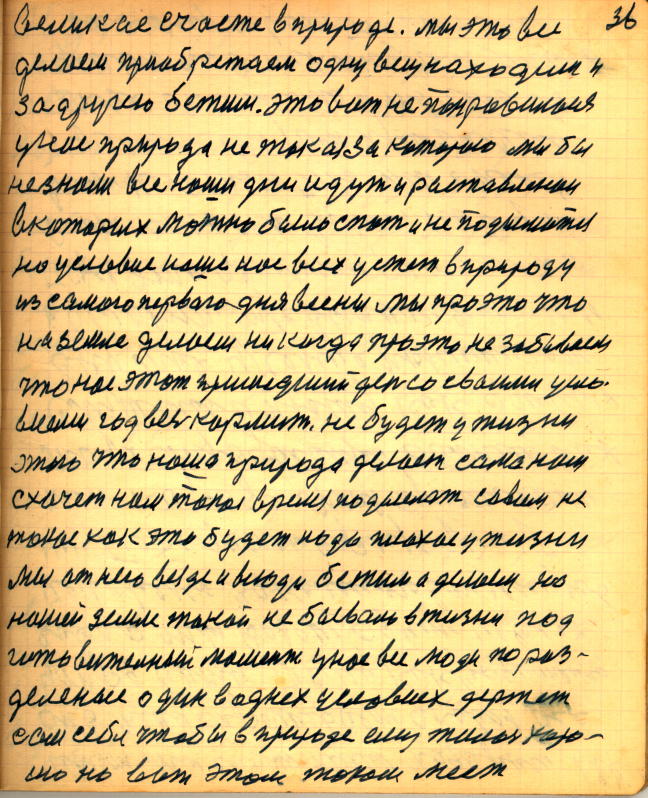 великае счасте в природе. мы это все 36
делаем приобретаем одну вещ находим и
за другею бежим. это вот не понравилася
у нас природа не такая за которою мы бы
не знали все наши дни идут и раставлении
в которых можно было спат и не подыматся
но условие наше нас всех устет в природу
из самого первого дня весны мы про это что
на земле делаем никогда про это не забываем
что нас этот пришедший ден со своими усло-
виями год весь кормит. не будет у жизни
этого что наша природа делает сама нам
схочет нам такое время подослат совсем не
такое как это будет надо плохое у жизни
мы от него везде и всюди бежим а делаем на
нашей земле такой не бывало в жизни под
готовителный момент у нас все люди по раз-
деленые один в однех условиях держет
сам себя чтобы в природе ему жилос харо-
шо но вот этом таком мест